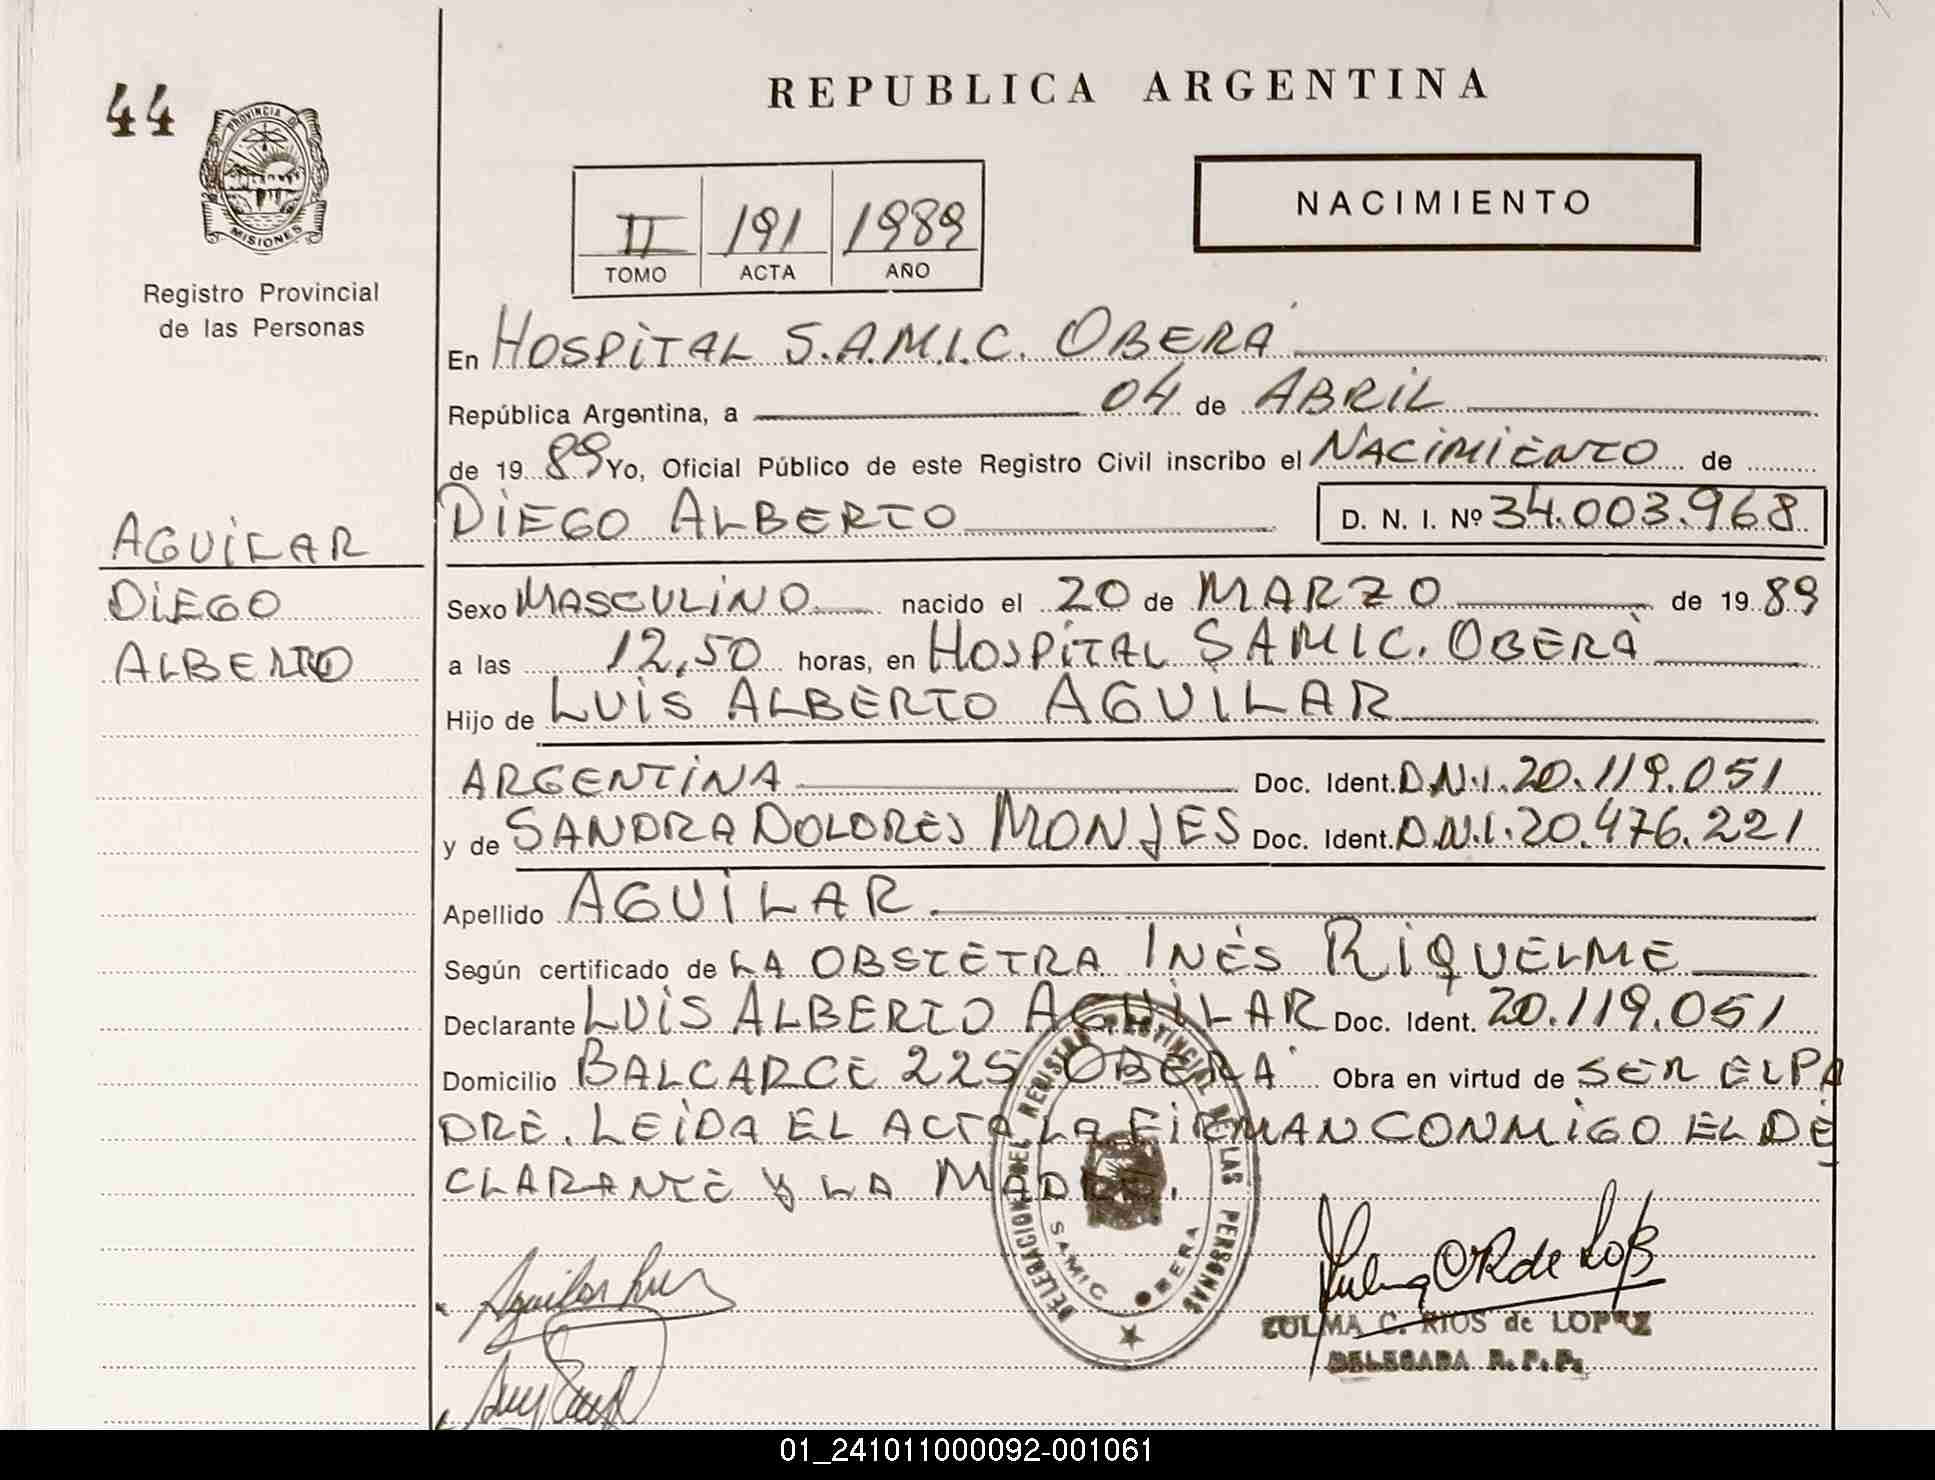 44
PROVINCIA DE
MISIONES
Registro Provincial
de las Personas
AGUILAR
DIEGO
ALBERTO
REPUBLICA ARGENTINA
II 191 1989
TOMO ACTA AÑO
NACIMIENTO
En HOSPITAL S.A.M.I.C. OBERÁ
República Argentina, a 04 de ABRIL
de 19 89 Yo, Oficial Público de este Registro Civil inscribo el NACIMIENTO de
DIEGO ALBERTO D. N. I. Nº 34.003.968
Sexo MASCULINO nacido el 20 de MARZO de 19 89
a las 12,50 horas, en HOSPITAL SAMIC. OBERÁ
Hijo de LUIS ALBERTO AGUILAR
ARGENTINA Doc. Ident. D.N.I. 20.119.051
y de SANDRA DOLORES MONJES Doc. Ident. D.N.I. 20.476.221
Apellido AGUILAR
Según certificado de LA OBSTETRA INÉS RIQUELME
Declarante LUIS ALBERTO AGUILAR Doc. Ident. 20.119.051
Domicilio BALCARCE 225 OBERÁ Obra en virtud de SER EL PA
DRE. LEIDA EL ACTA LA FIRMAN CONMIGO EL DE
CLARANTE Y LA MADRE.
DELEGACION DEL REGISTRO PROVINCIAL DE LAS PERSONAS
SAMIC OBERA
Aguilar Luis
Zulma C R de López
ZULMA C. RIOS de LOPEZ
DELEGADA R. P. P.
01_241011000092-001061